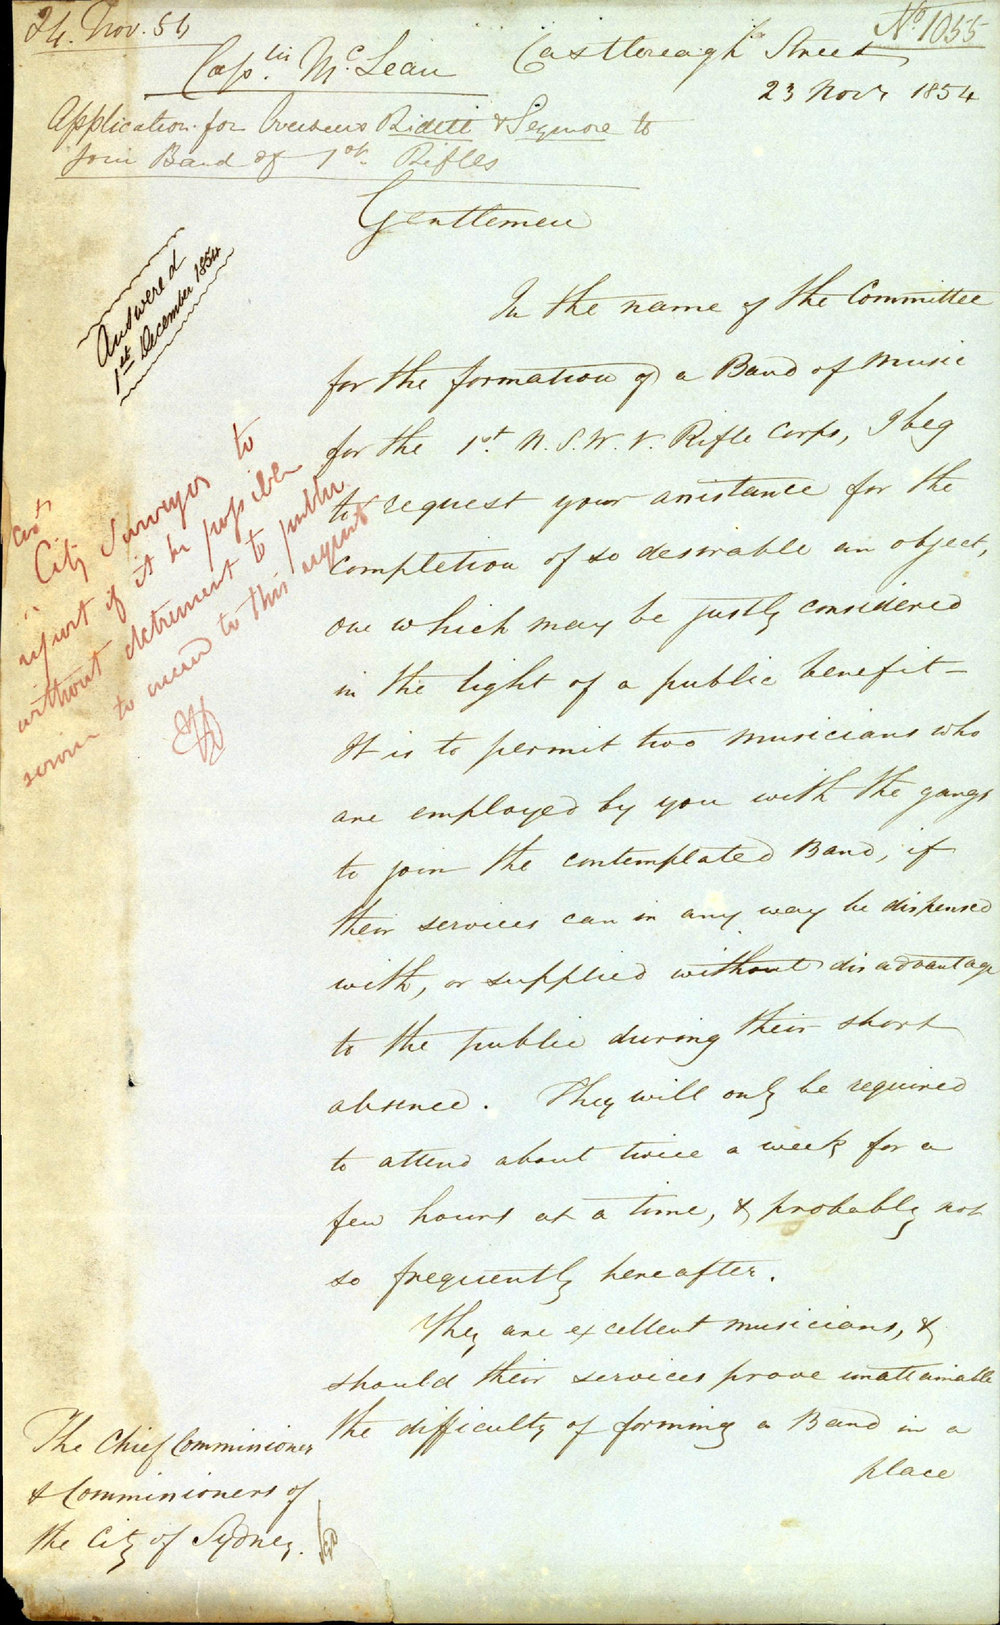 24. Nov. 54
No. 1055
Captn. McLean
Castlereagh Street
23 Novr 1854
Application for Overseers Ridett & Seymore to
join Band of 1st. Rifles
Gentlemen
Answered
1st December 1854
In the name of the Committee
for the formation of a Band of Music
for the 1st. N. S. W. V. Rifle Corps, I beg
to request your assistance for the
completion of so desirable an object,
one which may be justly considered
in the light of a public benefit—
It is to permit two musicians who
are employed by you with the gangs
to join the contemplated Band, if
their services can in any way be dispensed
with, or supplied without disadvantage
to the public during their short
absence. They will only be required
to attend about twice a week for a
few hours at a time, & probably not
so frequently hereafter.
They are excellent musicians, &
should their services prove unattainable
the difficulty of forming a Band in a
place
City Surveyor to
report if it be possible
without detriment to public
to accede to this request
The Chief Commissioner
& Commissioners of
the City of Sydney.